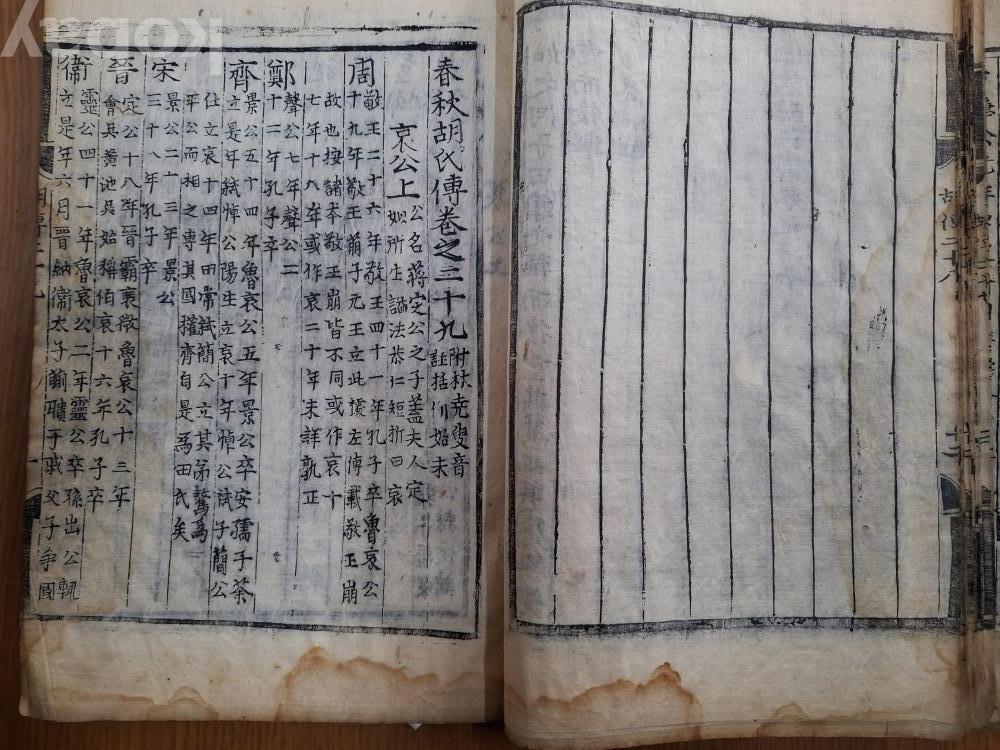 春秋胡氏傳卷之二十九 附林堯叟音
註括例始末
哀公上 公名蔣定公之子蓋夫人定
姒所生諡法恭仁短折曰哀
周 敬王二十六年敬王四十一年孔子卒魯哀公
十九年敬王崩子元王立此據左傳載敬王崩
故也按諸本敬王崩皆不同或作哀十
七年十八年或作哀二十年未詳孰正
鄭 聲公七年聲公二
十二年孔子卒
齊 景公五十四年魯哀公五年景公卒安孺子荼
立是年弒悼公陽生立哀十年悼公弒子簡公
任立哀十四年田常弒簡公立其弟驁為
平公而相之專其國權齊自是為田氏矣
宋 景公二十三年景公
三十八年孔子卒
晉 定公十八年晉霸衰微魯哀公十三年
會吳黃池吳始稱伯哀十六年孔子卒
衛 靈公四十一年魯哀公二年靈公卒孫出公輒
立是年六月晉納衛太子蒯聵于戚父子爭國
胡傳二十八
kobay